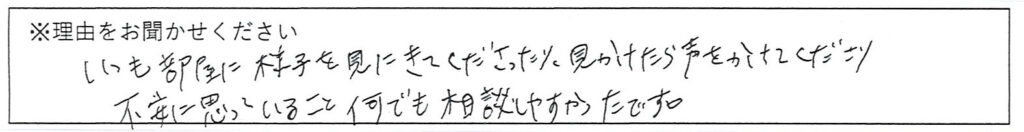 ※理由をお聞かせください
いつも部屋に様子を見にきてくださったり、見かけたら声をかけてくださり
不安に思っていること何でも相談しやすかったです。